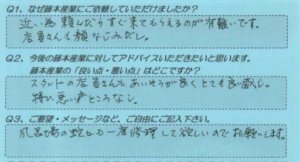 Q1、なぜ藤本産業にご依頼していただけましたか？
近い為 頼んだらすぐ来てもらえるのが有難いです。
店員さんも頼もしいです。
Q2、今後の藤本産業に対してアドバイスいただきたいと思います。
藤本産業の「良い点・悪い点」はどこですか？
スタンドの店員さんもあいそうが良くとても良い感じ。
特に悪い所ところなし。
Q3、ご要望・メッセージなど、ご自由にご記入下さい。
風呂場の蛇口も一度修理して欲しいのでお願いします。